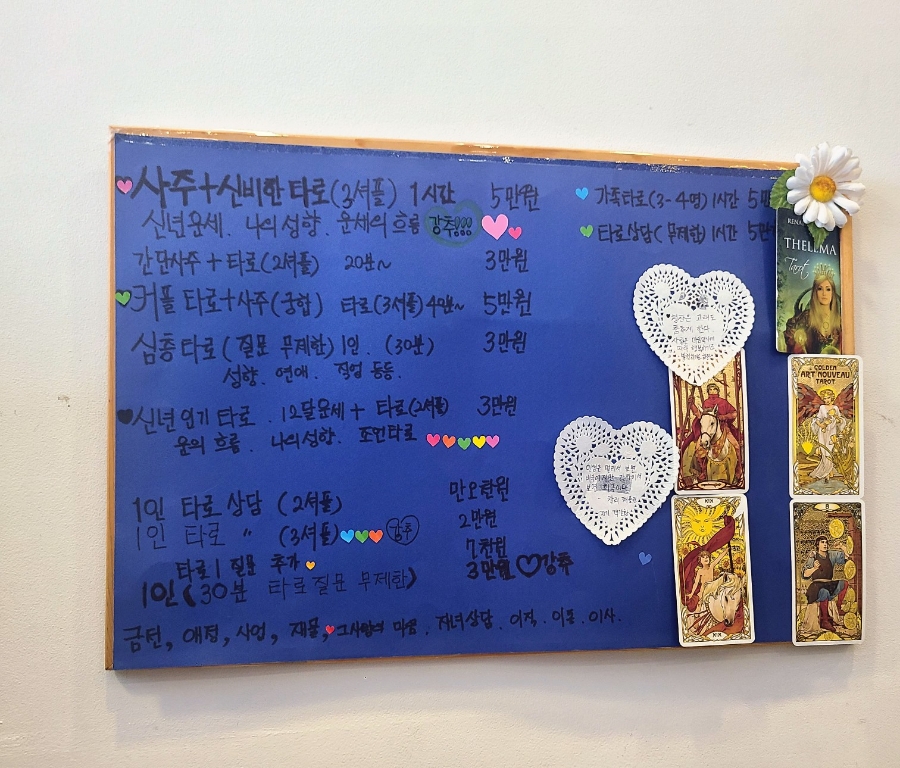 사주+신비한 타로(3셔플) 1시간 5만원
신년운세. 나의성향. 운세의 흐름 강추!!!
간단사주 + 타로(2셔플) 20분~ 3만원
커플 타로+사주(궁합) 타로(3셔플) 40분~ 5만원
심층타로(질문 무제한) 1인. (30분) 3만원
성향. 연애. 직업 등등.
신년 타로. 12달운세 + 타로(2셔플) 3만원
운의 흐름. 나의성향. 조언타로
1인 타로 상담 (2셔플) 만오천원
1인 타로 〃 (3셔플) 강추 2만원
타로 1 질문 추가 7천원
1인(30분 타로질문 무제한) 3만원 강추
금전, 애정, 사업, 재물, 그사람의 마음. 자녀상담. 이직. 이동. 이사.
가족타로(3-4명) 1시간 5만
타로상담(무제한) 1시간 5만
THELEMA
Tarot
GOLDEN
ART NOUVEAU
TAROT